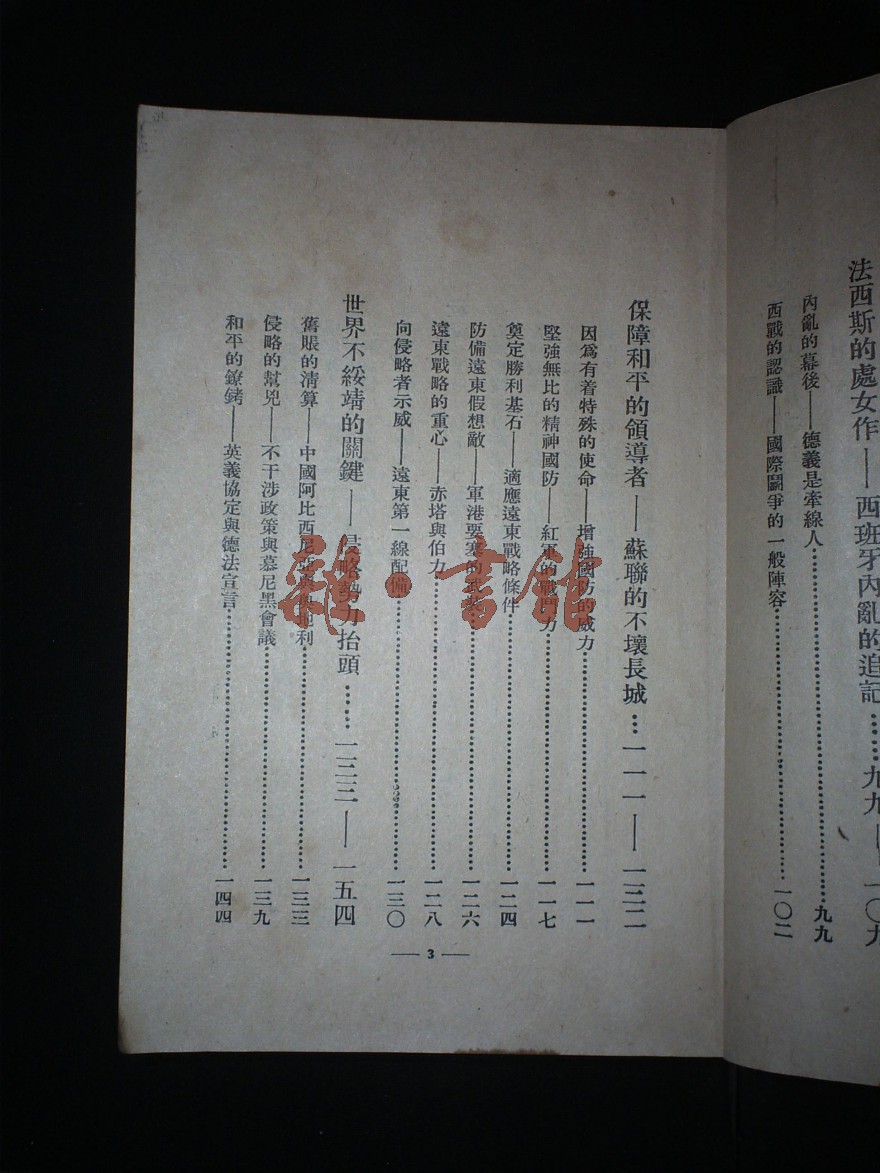 法西斯的處女作——西班牙內亂的追記……九九——一〇九
內亂的幕後——德義是牽線人……九九
西戰的認識——國際鬭爭的一般陣容……一〇二
保障和平的領導者——蘇聯的不壞長城…一一一——一三二
因爲有着特殊的使命——增強國防的威力……一一一
堅強無比的精神國防——紅軍的戰鬥力……一一七
奠定勝利基石——適應遠東戰略條件……一二四
防備遠東假想敵——軍港要塞的……一二六
遠東戰略的重心——赤塔與伯力……一二八
向侵略者示威——遠東第一線配備……一三〇
世界不綏靖的關鍵——侵略勢力抬頭……一三三——一五四
舊賬的清算——中國阿比西尼亞與奧地利……一三三
侵略的幫兇——不干涉政策與慕尼黑會議……一三九
和平的鐐銬——英義協定與德法宣言……一四四
— 3 —
雜·書館